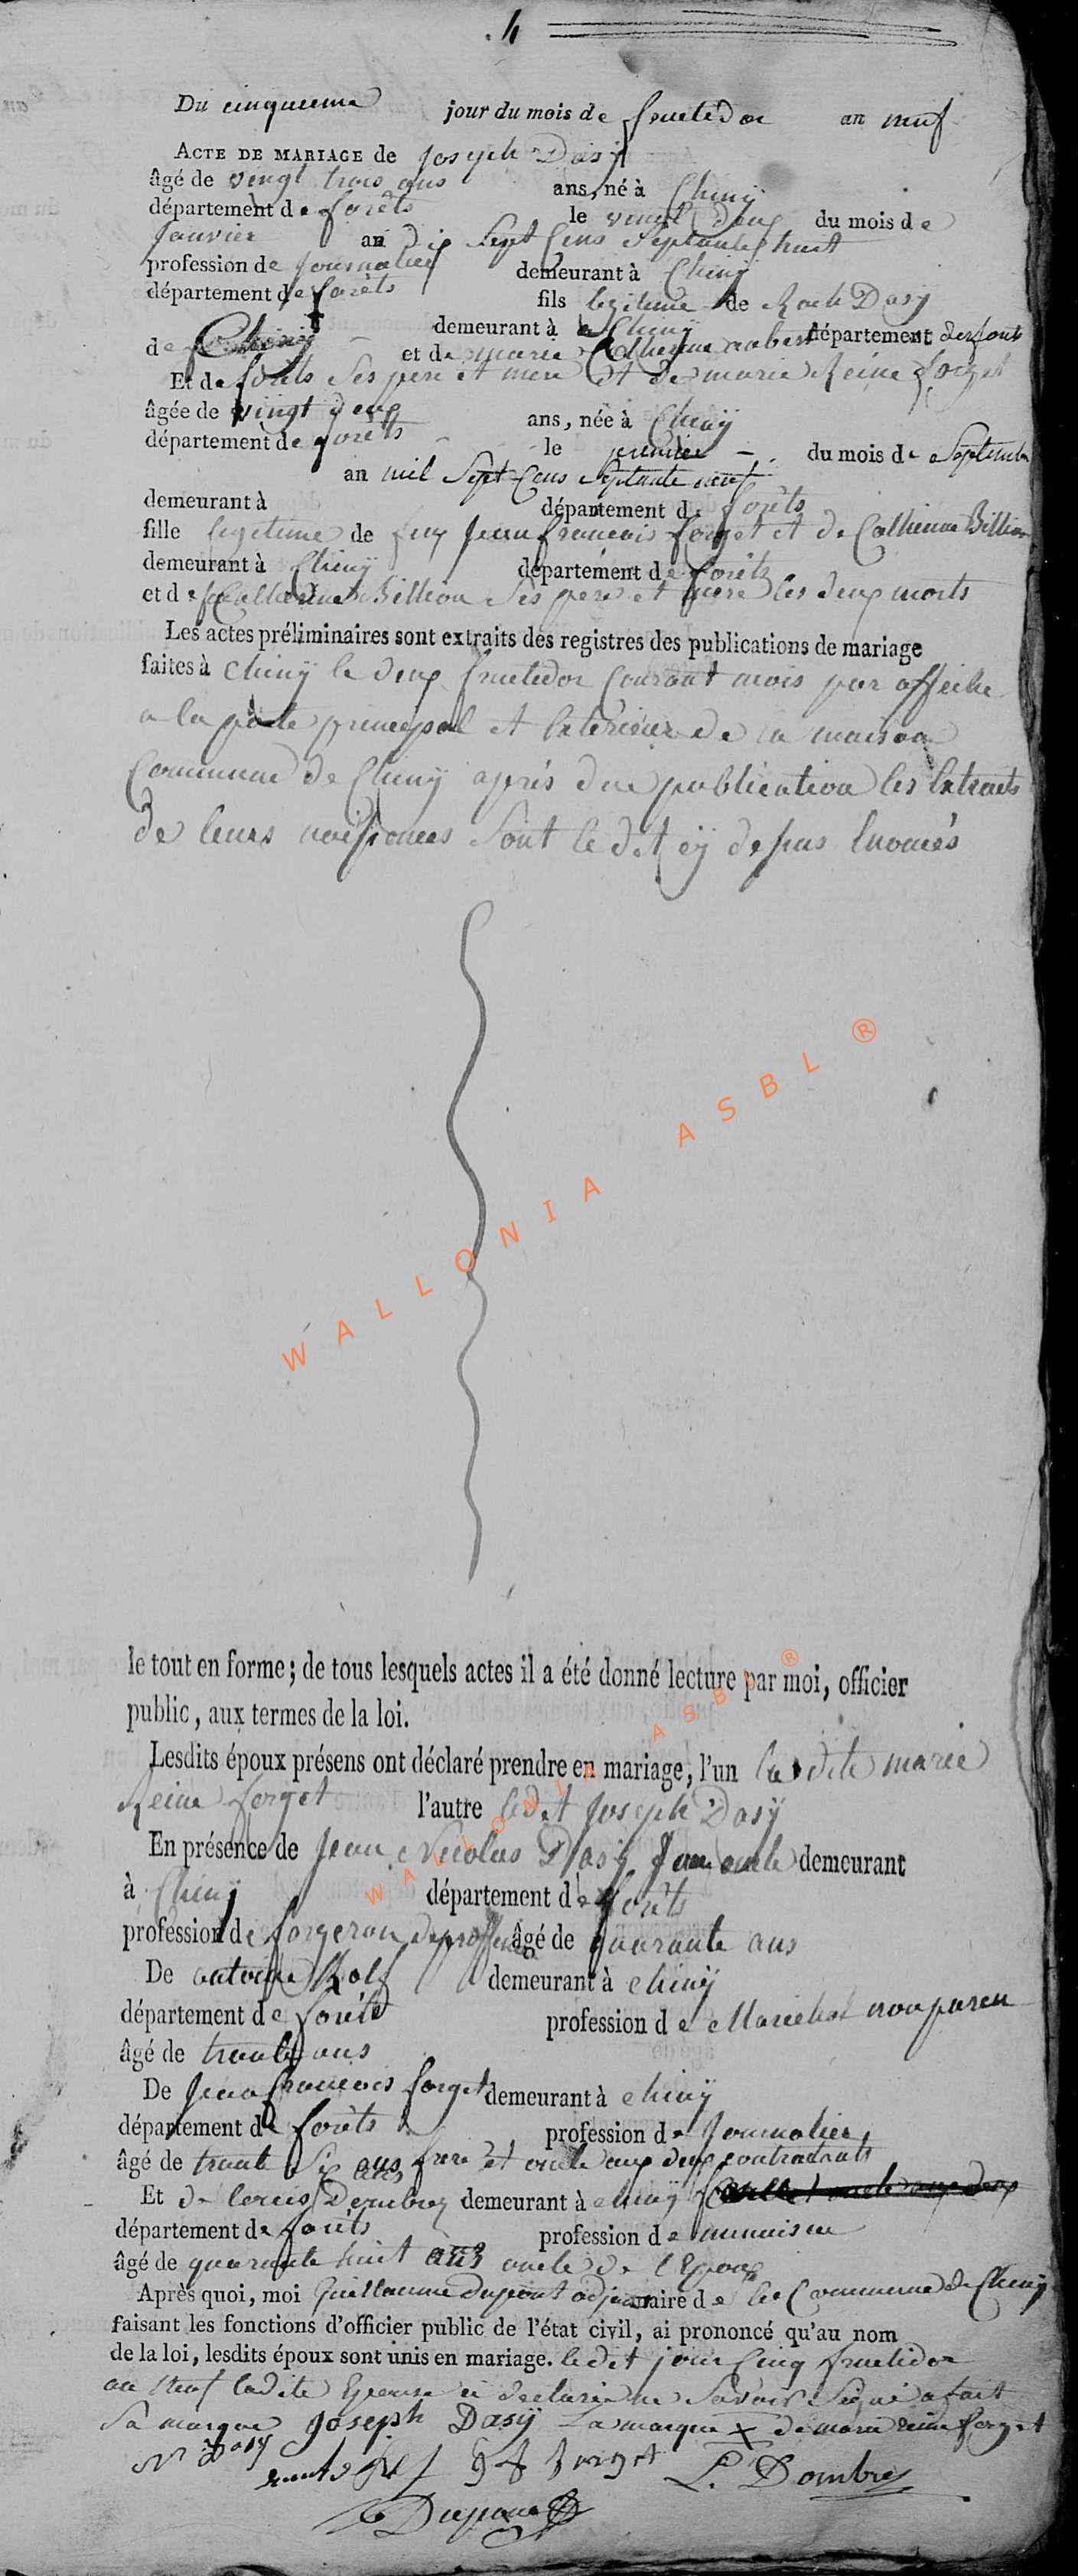 4
Du cinquieme jour du mois de fructidor an neuf
ACTE DE MARIAGE de Joseph Dasÿ
âgé de vingt trois ans ans, né à Chinÿ
département de forêts le vingt deux du mois de
Janvier an dix Sept Cens Septante huit
profession de Journalier demeurant à Chinÿ
département de forêts fils legitime de Roch Dasÿ
demeurant à a Chinÿ département des forets
de Chiniÿ et de marie Catherine aubert
Et de forêts Ses pere et mere Et de marie Reine forget
âgée de vingt deux ans, née à Chinÿ
département de forêts le premier du mois de Septembre
an mil Sept Cens Septante neuf
demeurant à département de forêts
fille legitime de feu Jean francois forget et de Catherine Billion
demeurant à Chinÿ département de forêts
et de Catherine Billion Ses pere et mere les deux morts
Les actes préliminaires sont extraits des registres des publications de mariage
faites à Chinÿ le deux fructidor Courant mois par affiche
a la porte principal et Exterieur de la maison
Commune de Chinÿ aprés due publication les Extraits
de leurs naissances Sont le dit cÿ dessus Enoncés
WALLONIA ASBL ®
le tout en forme ; de tous lesquels actes il a été donné lecture par moi, officier
public, aux termes de la loi.
Lesdits époux présens ont déclaré prendre en mariage, l'un la dite marie
Reine forget l'autre ledit Joseph Dasÿ
WALLONIA ASBL ®
En présence de Jean Nicolas Dasÿ oncle demeurant
à Chinÿ département de forêts
profession de forgeron de profession âgé de quarante ans
De antoine Rolf demeurant à chinÿ
département de forêts profession de Marechal non paren
âgé de trente ans
De Jean francois forget demeurant à chinÿ
département de forêts profession de Journalier
âgé de trente Six ans frere et oncle aux deux contractants
Et de louis Dembrez demeurant à chinÿ
département de forêts profession de menuisier
âgé de quarante huit ans oncle de l'Epoux
Après quoi, moi Guillaume dupont adjoint maire de la Commune de Chinÿ
faisant les fonctions d'officier public de l'état civil, ai prononcé qu'au nom
de la loi, lesdits époux sont unis en mariage. ledit jour Cinq fructidor
an Neuf ladite Epouse a declaré ne Savoir Signé a fait
Sa marque Joseph Dasÿ La marque X de marie reine forget
N Dasÿ
J f forget L. Dombre
G Dupont